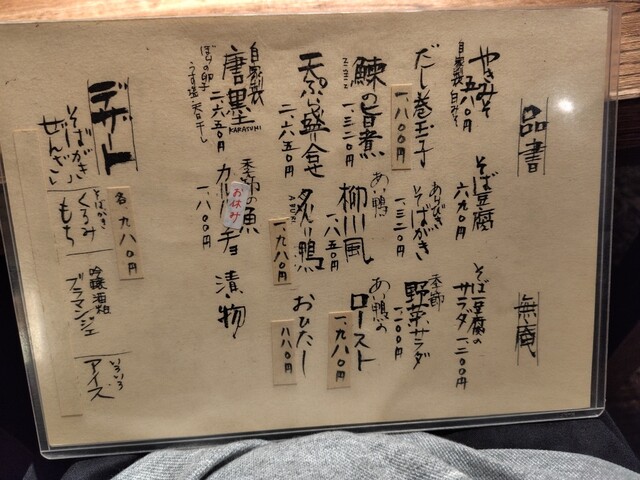 品書
無庵
やきみそ
自家製 白みそ
五八〇円
そば豆腐
六九〇円
そば豆腐の
サラダ
一、二〇〇円
だし巻玉子
一、八〇〇円
あげびたき
そばがき
一、三二〇円
季節
野菜サラダ
一、一〇〇円
鰊の旨煮
一、三二〇円
あい鴨
柳川風
一、八五〇円
あい鴨の
ロースト
一、九八〇円
天ぷら盛合せ
二、六五〇円
炙り鴨
ABURI
一、九八〇円
おひたし
八八〇円
自家製
唐墨
KARASUMI
二、六五〇円
ぼらの卵子
うす塩・天日干し
季節の魚
カルパッチョ
お休み
一、八〇〇円
漬物
デザート
各 九八〇円
そばがき
ぜんざい
そばがき
くるみ
もち
吟醸酒粕
ブラマンジェ
いろいろ
アイス